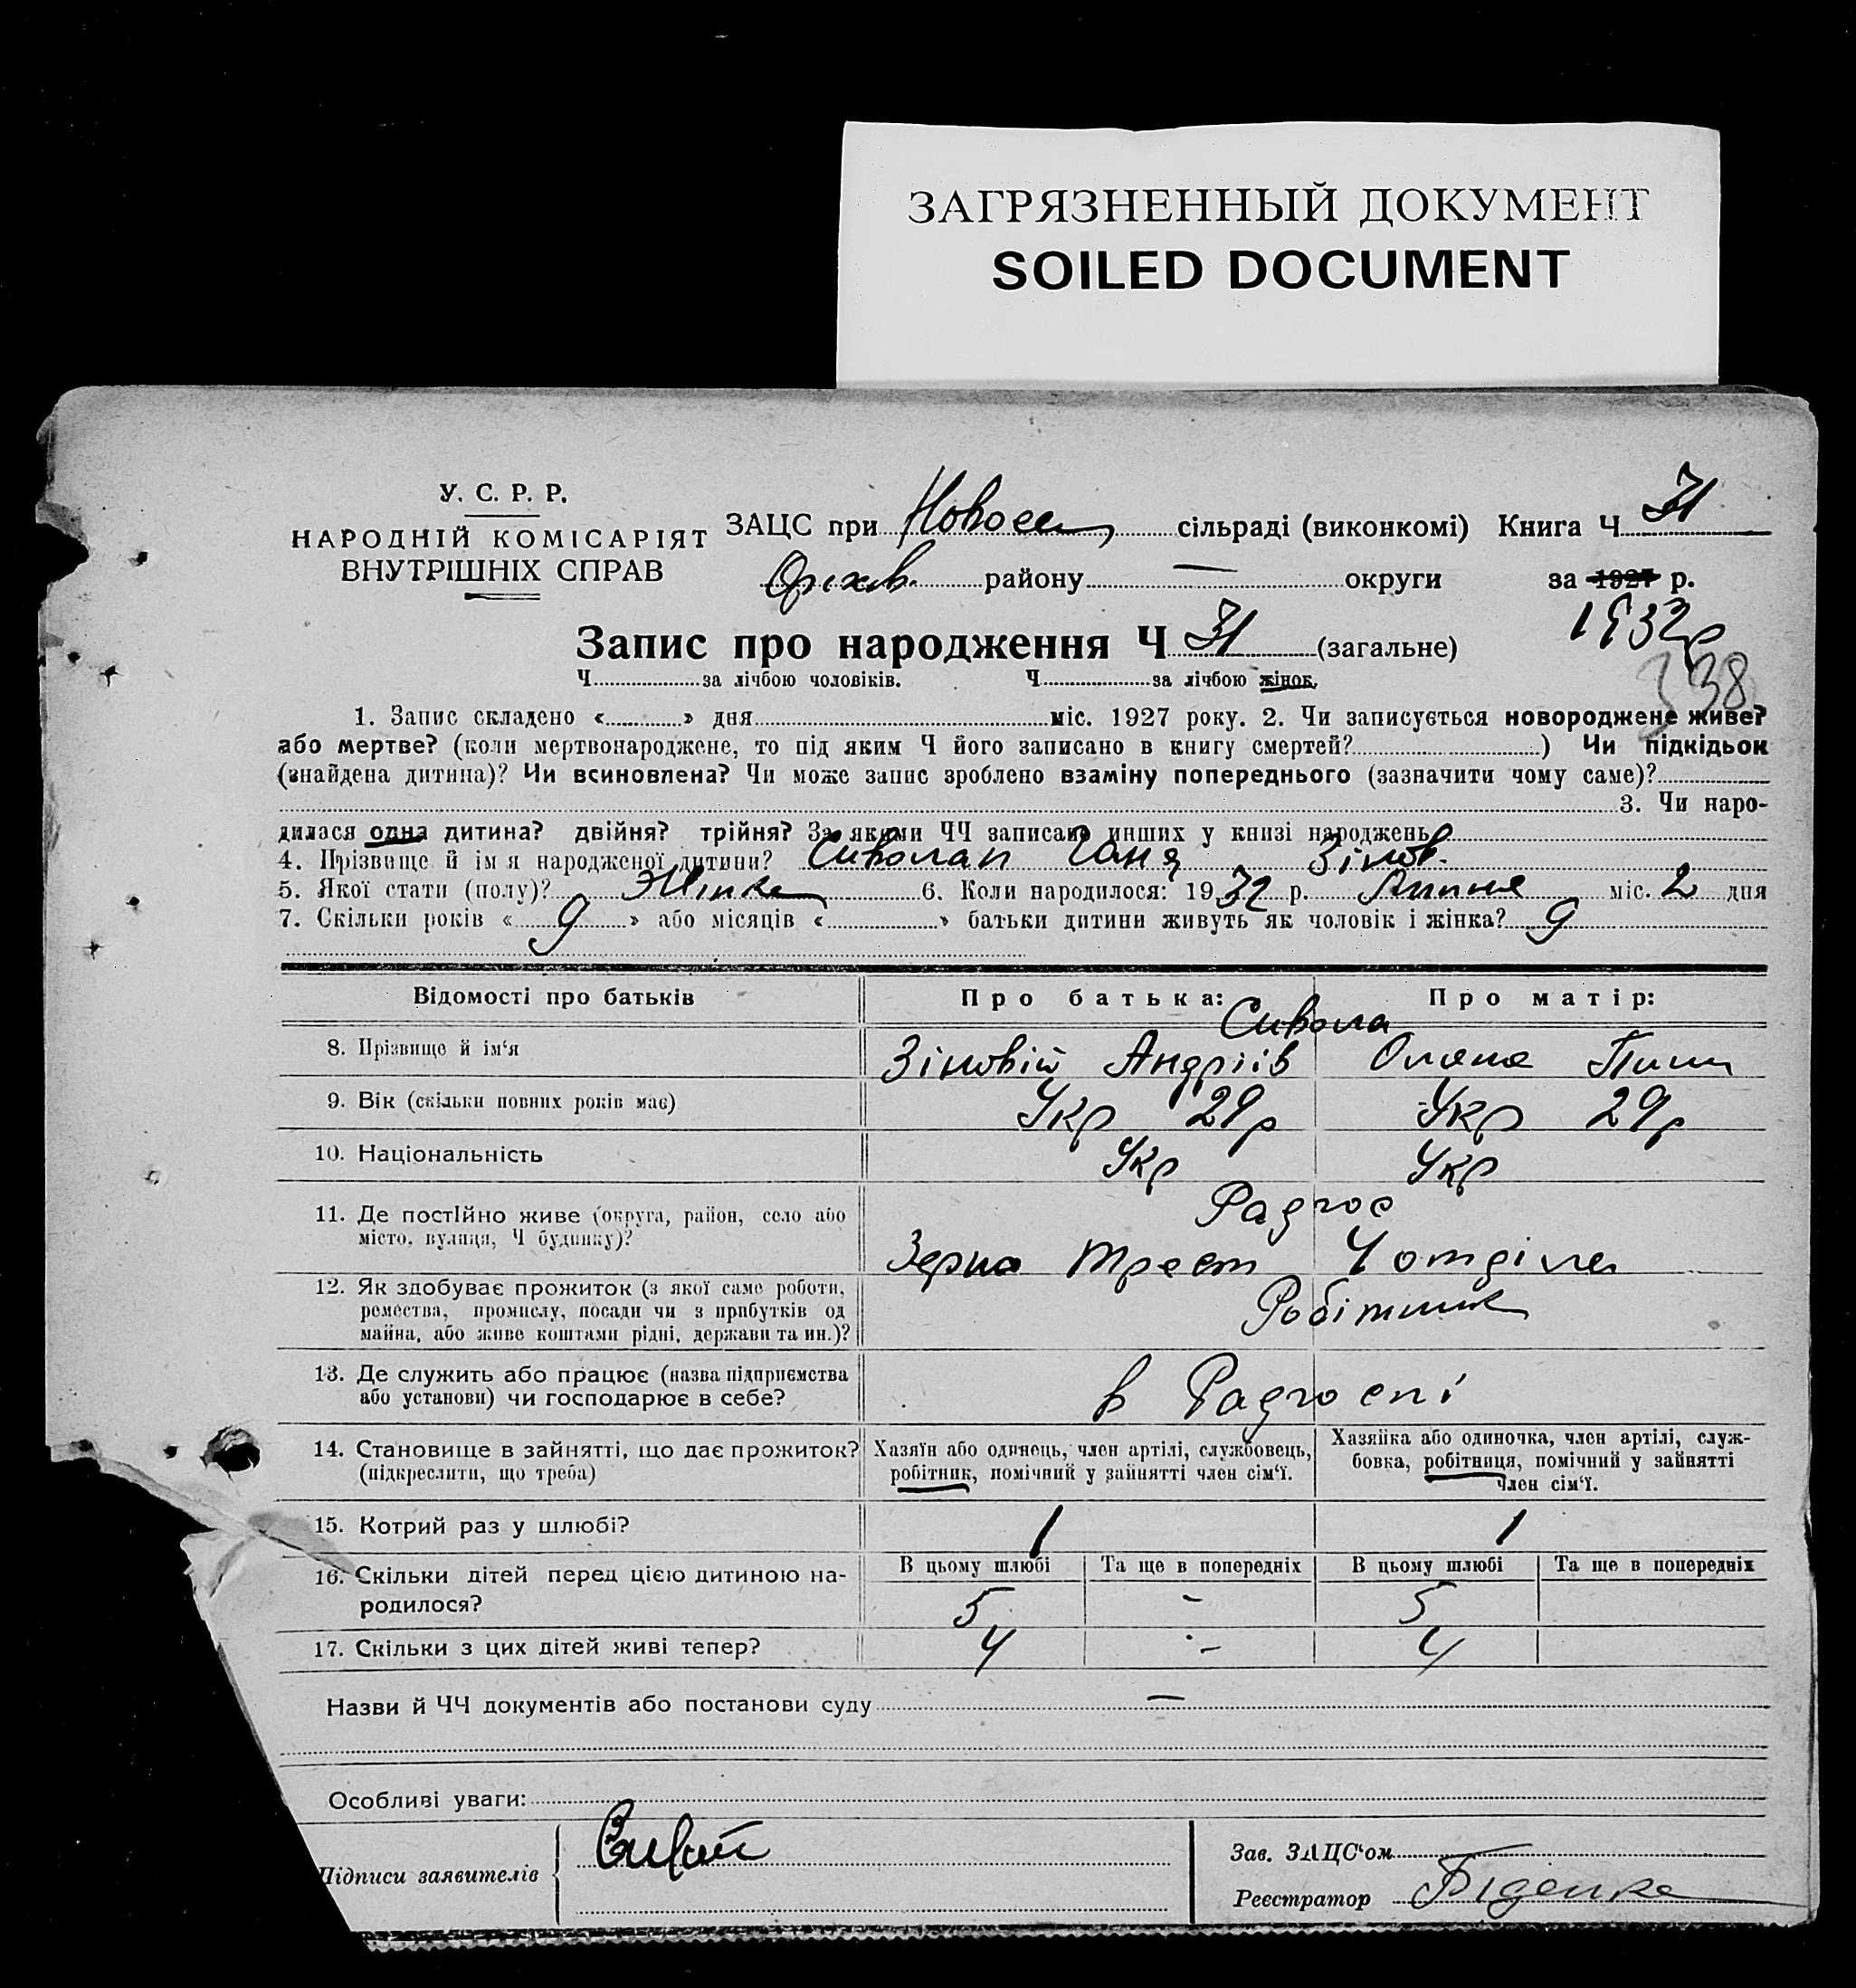 ЗАГРЯЗНЕННЫЙ ДОКУМЕНТ
SOILED DOCUMENT
У. С. Р. Р.
НАРОДНІЙ КОМІСАРІЯТ
ВНУТРІШНІХ СПРАВ
ЗАЦС при Новосел сільраді (виконкомі) Книга Ч
Оріхів. району — округи за 1927 р.
1932р
Запис про народження Ч 31 (загальне)
338
Ч за лічбою чоловіків. Ч за лічбою жінок.
1. Запис складено « » дня міс. 1927 року. 2. Чи записується новороджене живе?
або мертве? (коли мертвонароджене, то під яким Ч його записано в книгу смертей? ) Чи підкідьок
(знайдена дитина)? Чи всиновлена? Чи може запис зроблено взаміну попереднього (зазначити чому саме)?
3. Чи наро-
дилася одна дитина? двійня? трійня? За якими ЧЧ записано инших у книзі народжень
4. Прізвище й ім'я народженої дитини? Сиволап Ганя Зінов.
5. Якої стати (полу)? Жінка 6. Коли народилося: 1932 р. Липня міс. 2 дня
7. Скільки років « 9 » або місяців « » батьки дитини живуть як чоловік і жінка? 9
Відомості про батьків Про батька: Про матір:
Сивола
8. Прізвище й ім'я Зіновій Андріїв Олена Пили
9. Вік (скільки повних років має) Укр 29р Укр 29р
10. Національність Укр Укр
11. Де постійно живе (округа, район, село або Радгос
місто, вулиця, Ч будинку)? Зерно трест 4 отділен
12. Як здобуває прожиток (з якої саме роботи, Робітник
ремества, промислу, посади чи з прибутків од
майна, або живе коштами рідні, держави та ин.)?
13. Де служить або працює (назва підприємства в Радгоспі
або установи) чи господарює в себе?
14. Становище в зайнятті, що дає прожиток? Хазяїн або одинець, член артілі, службовець, Хазяйка або одиночка, член артілі, служ-
(підкреслити, що треба) робітник, помічний у зайнятті член сім'ї. бовка, робітниця, помічний у зайнятті
член сім'ї.
15. Котрий раз у шлюбі? 1 1
16. Скільки дітей перед цією дитиною на- В цьому шлюбі Та ще в попередніх В цьому шлюбі Та ще в попередніх
родилося? 5 - 5
17. Скільки з цих дітей живі тепер? 4 - 4
Назви й ЧЧ документів або постанови суду —
Особливі уваги:
Підписи заявителів
Зав. ЗАЦС'ом
Реєстратор Біденка